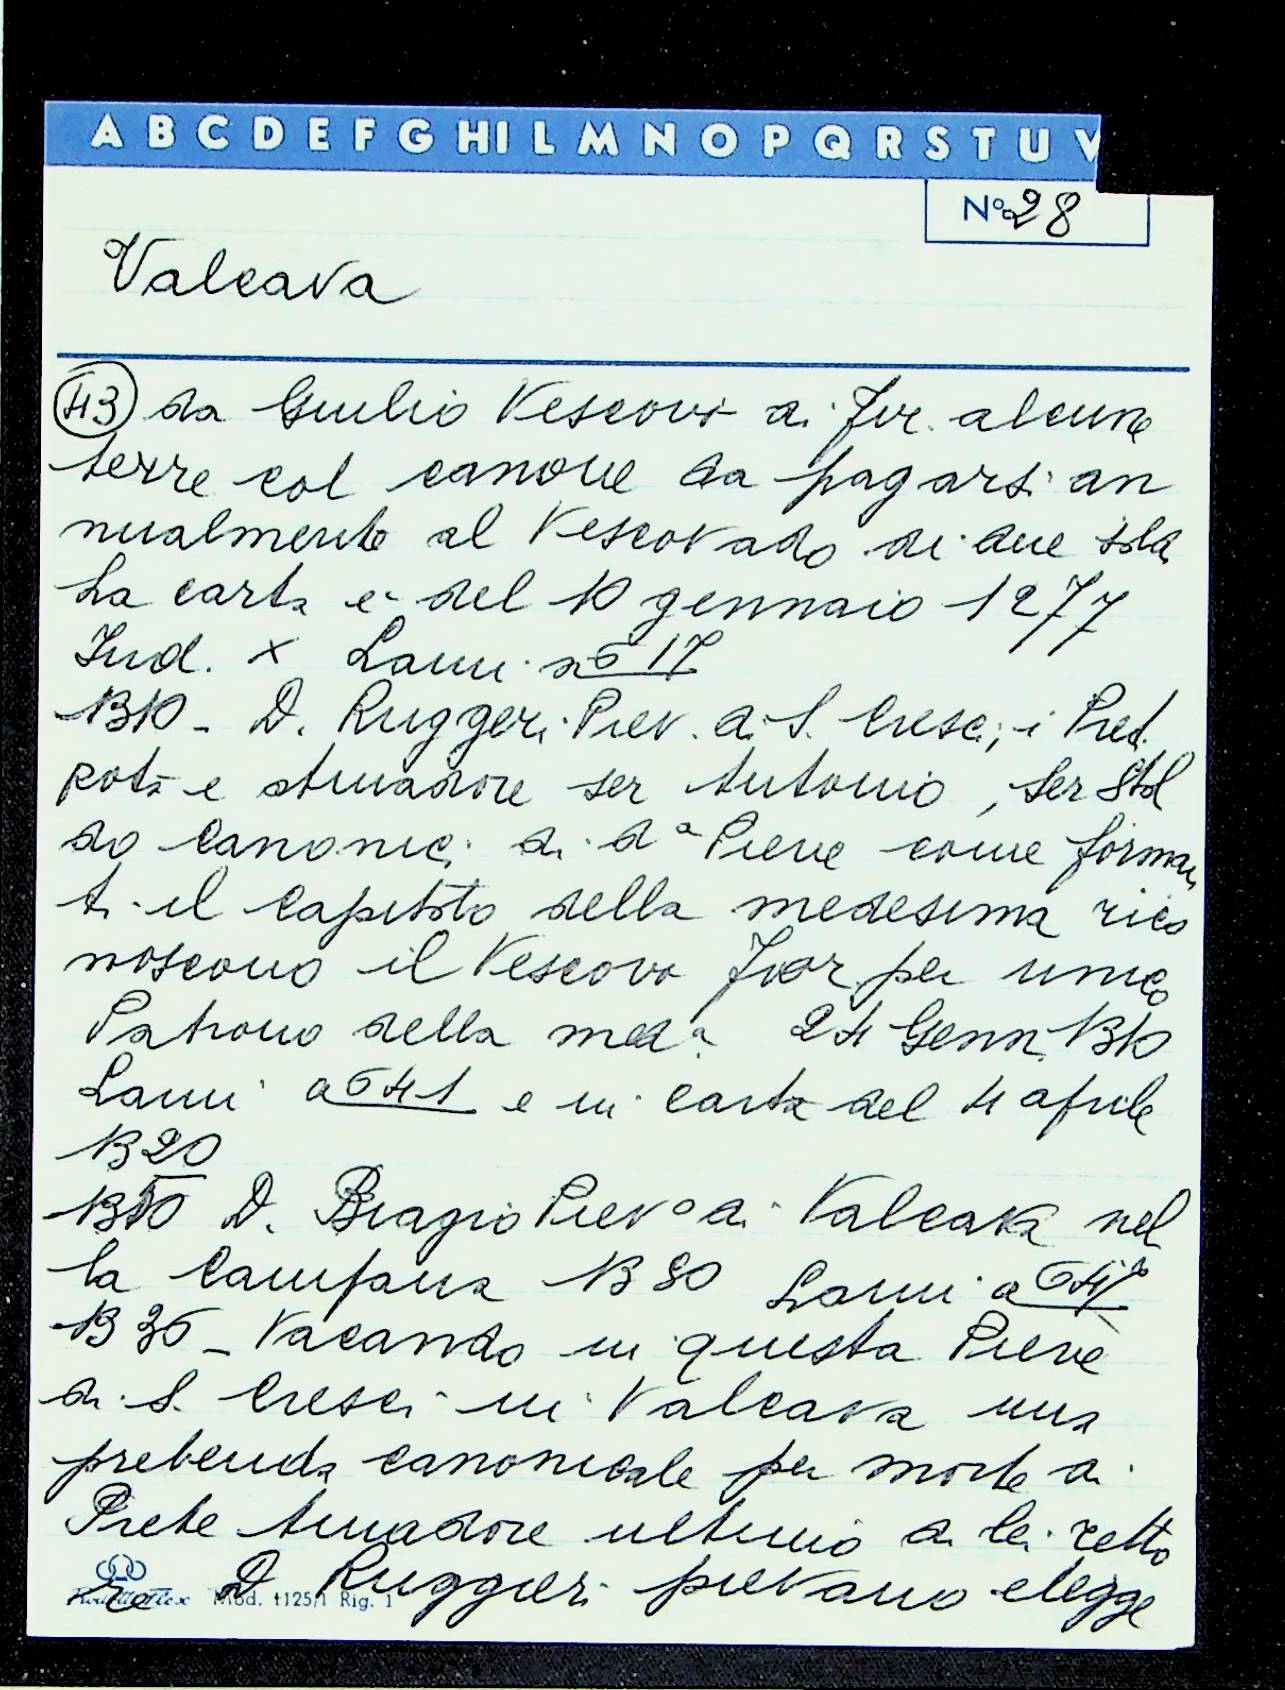 A B C D E F G HI L M N O P Q R S T U V
No 28
Valcava
(43) da Giulio Vescovo di Fir. alcune
terre col canone da pagarsi an
nualmente al Vescovado di due
La carta è del 10 gennaio 1277
Ind. X Lami no 617
1310 - D. Ruggeri Piev. di S. Cresci, i Preti
e Amadore ser Antonio, ser Stol
do Canonici di da Pieve come forman
ti il Capitolo della medesima rico
noscono il Vescovo Fior per unico
Patrono della meda 24 Genn 1310
Lami a 641 e in carta del 4 aprile
1320
D. Biagio Pievo di Valcava nel
la Campana 1330 Lami a
1336 - Vacando in questa Pieve
di S. Cresci in Valcava una
prebenda canonicale per morte di
Prete Amadore ultimo di lei retto
re D. Ruggieri pievano elegge
Mod. 1125/1 Rig. 1